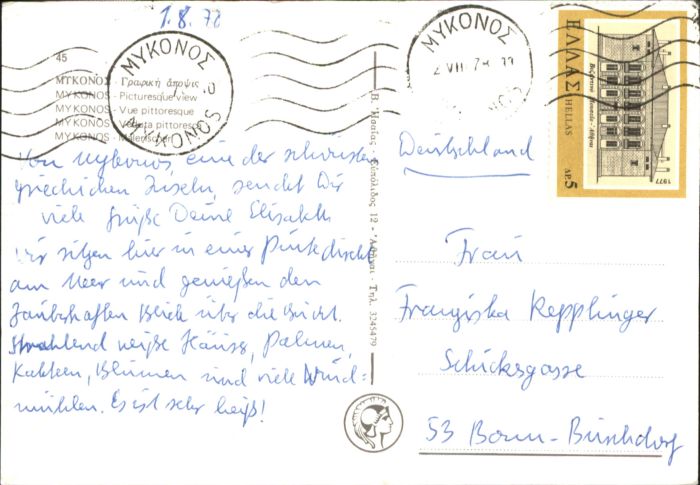 1.8.78
45
ΜΥΚΟΝΟΣ - Γραφική άποψις
MYKONOS - Picturesque view
MYKONOS - Vue pittoresque
MYKONOS - Veduta pittoresca
MYKONOS - Malerische
ΜΥΚΟΝΟΣ
MYKONOS
Von Mykonos, eine der schönsten
griechischen Inseln, sendet Dir
viele Grüße Deine Elisabeth
Wir sitzen hier in einer Pinte direkt
am Meer und genießen den
zauberhaften Blick über die Bucht.
Strahlend weiße Häuser, Palmen,
Kakteen, Blumen und viele Wind=
mühlen. Es ist sehr heiß!
Εὐπόλιδος 12 - Ἀθῆναι - Τηλ. 3245479
ΜΥΚΟΝΟΣ
ΕΛΛΑΣ
HELLAS
ΔΡ. 5
1977
Deutschland
Frau
Franziska Repplinger
Schicksgasse
53 Bonn-Buschdorf